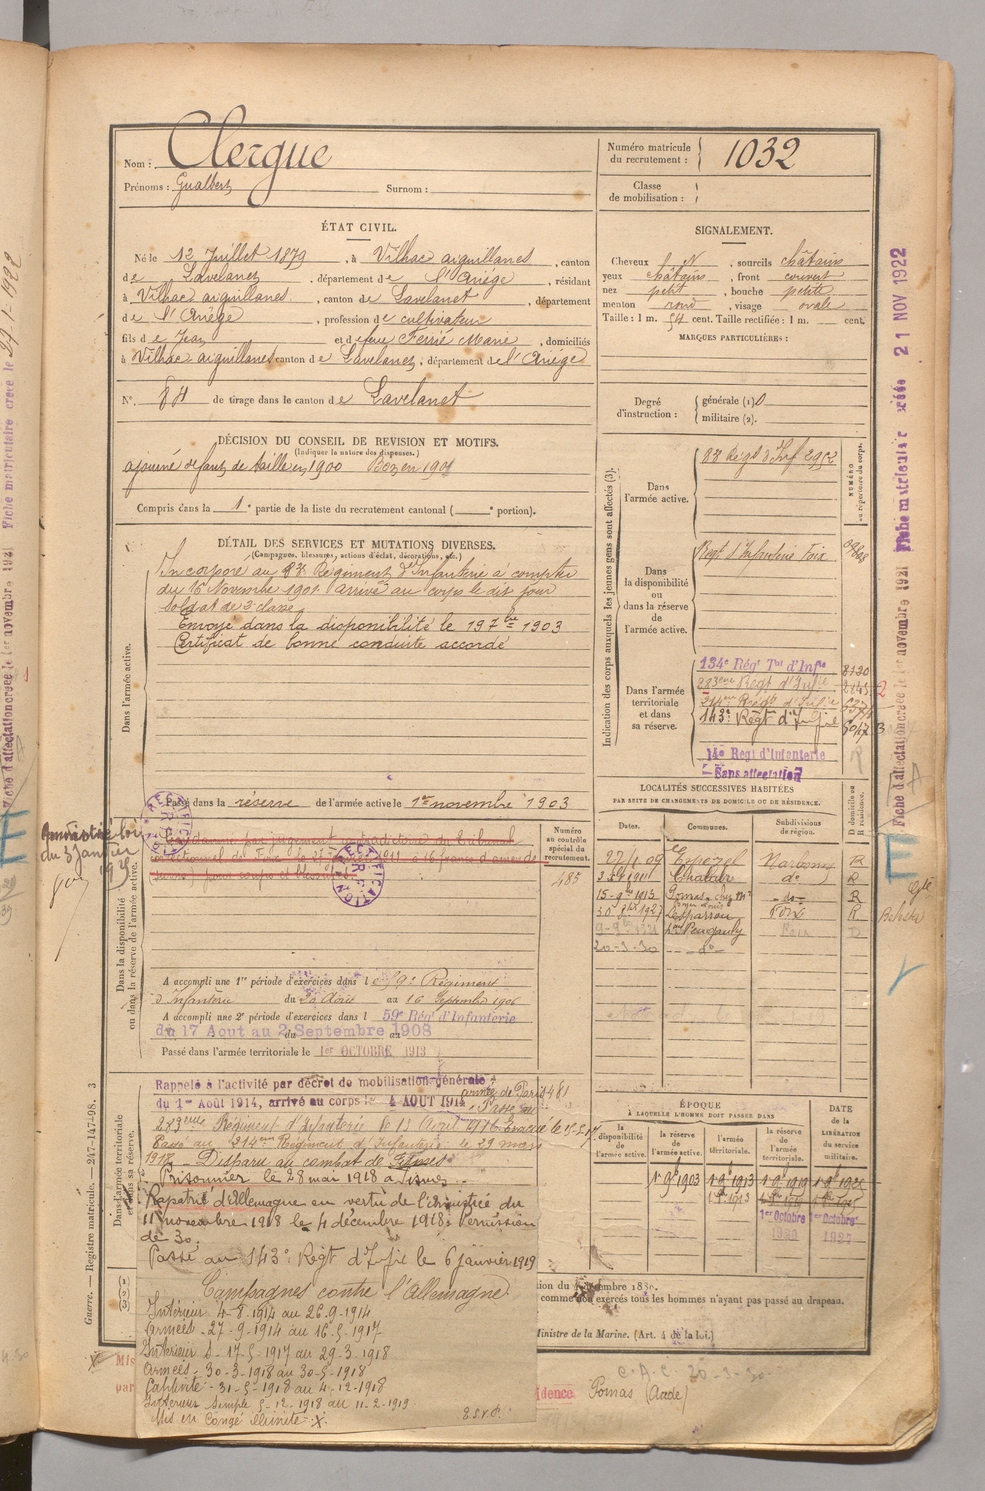 Nom : Clergue
Prénoms : Gualbert Surnom :
Numéro matricule du recrutement : 1032
Classe de mobilisation :
ÉTAT CIVIL.
Né le 12 Juillet 1879, à Vilhac aiguillanes, canton
de Lavelanet, département de l'Ariège, résidant
à Vilhac aiguillanes, canton de Lavelanet, département
de l'Ariège, profession de cultivateur
fils de Jean et de feue Ferrié Marie, domiciliés
à Vilhac aiguillanes canton de Lavelanet, département de l'Ariège
N° 84 de tirage dans le canton de Lavelanet
SIGNALEMENT.
Cheveux N, sourcils châtains
yeux châtains, front couvert
nez petit, bouche petite
menton rond, visage ovale
Taille : 1 m. 54 cent. Taille rectifiée : 1 m. cent.
MARQUES PARTICULIÈRES :
Degré d'instruction : générale (1) 0
militaire (2).
DÉCISION DU CONSEIL DE REVISION ET MOTIFS.
(Indiquer la nature des dispenses.)
ajourné défaut de taille en 1900 Bon en 1901
Compris dans la 1e partie de la liste du recrutement cantonal ( e portion).
DÉTAIL DES SERVICES ET MUTATIONS DIVERSES.
(Campagnes, blessures, actions d'éclat, décorations, etc.)
Dans l'armée active.
Incorporé au Régiment d'Infanterie à compter
du 16 Novembre 1901 arrivé au corps le dit jour
soldat de 2e classe
Envoyé dans la disponibilité le 19 7bre 1903
Certificat de bonne conduite accordé
Passé dans la réserve de l'armée active le 1er novembre 1903
Dans la disponibilité ou dans la réserve de l'armée active.
RECTIFICATION
RECTIFICATION
Amnistié loi
du 3 Janvier
1925
Numéro au contrôle spécial du recrutement.
485
A accompli une 1re période d'exercices dans l Régiment
d'Infanterie du 20 Août au 16 Septembre 1906
A accompli une 2e période d'exercices dans l 59e Rég' d'Infanterie
du 17 Aout au 2 Septembre 1908
Passé dans l'armée territoriale le 1er OCTOBRE 1913
Dans l'armée territoriale et dans sa réserve.
Rappelé à l'activité par décret de mobilisation générale
du 1er Août 1914, arrivé au corps le 4 AOUT 1914
armée de Paris
Passé au
Régiment d'Infanterie le 13 Avril 1916 Évacué le 17.5.17
Passé au 214ème Régiment d'Infanterie le 29 mars
1918 Disparu au combat de
Prisonnier le 28 mai 1918 à
Rapatrié d'Allemagne en vertu de l'armistice du
11 novembre 1918 le 4 décembre 1918. Permission
de 30.
Passé au 143e Régt d'Infie le 6 janvier 1919
Campagnes contre l'Allemagne
Intérieur 4-8-1914 au 26-9-1914
Armées - 27-9-1914 au 16-5-1917
Intérieur S - 17-5-1917 au 29-3-1918
Armées - 30-3-1918 au 30-5-1918
Captivité - 31-5-1918 au 4-12-1918
Intérieur simple 5-12-1918 au 11-2-1919
Mis en Congé illimité
T.S.V.P.
Indication des corps auxquels les jeunes gens sont affectés (3).
NUMÉRO au répertoire du corps.
Dans l'armée active.
Régt d'Inf 2952
Dans la disponibilité ou dans la réserve de l'armée active.
Régt d'Infanterie Foix
Dans l'armée territoriale et dans sa réserve.
134e Rég' Tal d'Infie 8120
Régt d'Infie
214e Régt d'Infie
143e Régt d'Infie
14e Regt d'Infanterie
Sans affectation
LOCALITÉS SUCCESSIVES HABITÉES
PAR SUITE DE CHANGEMENTS DE DOMICILE OU DE RÉSIDENCE.
Dates. Communes. Subdivisions de région. D domicile ou R résidence.
27/1 09 Espezel Narbonne R
Chalabre do R
15-9-1913 Pomas R
1927 Lesparrou Foix R
Pengauly D
20-3-30 do
ÉPOQUE
À LAQUELLE L'HOMME DOIT PASSER DANS
DATE de la LIBÉRATION du service militaire.
la disponibilité de l'armée active. la réserve de l'armée active. l'armée territoriale. la réserve de l'armée territoriale.
1 9 1903 1 9 1913 1 9 1919 1 9 1925
1er Octobre 1er Octobre
comme exercés tous les hommes n'ayant pas passé au drapeau.
Ministre de la Marine. (Art. 4 de la loi.)
C.A.C 20-3-30
Pomas (Aude)
Guerre. — Registre matricule. — 247-147-98. 3
21 NOV 1922
Fiche matriculaire créée
Fiche d'affectation créée le 1er novembre 1921